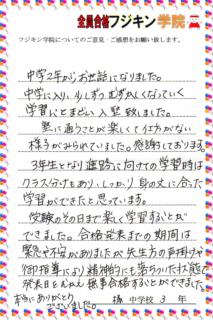 全員合格フジキン学院
フジキン学院についてのご意見・ご感想をお願い致します。
中学2年からお世話になりました。
中学に入り少しずつむずかしくなっていく
学習にとまどい入塾致しました。
塾に通うことが楽しくて仕方がない
様子がみられていました。感謝しております。
3年生となり進路に向けての学習時は
クラス分けもあり、しっかり身の丈に合った
学習ができたと思っています。
受験のその日まで楽しく学習することが
できました。合格発表までの期間は
緊張や不安がありましたが先生方の声掛けや
御指導により精神的にも落ちついた状態で
発表日をむかえ無事合格することができました。
本当にありがとう
ございました。
中学校 3 年